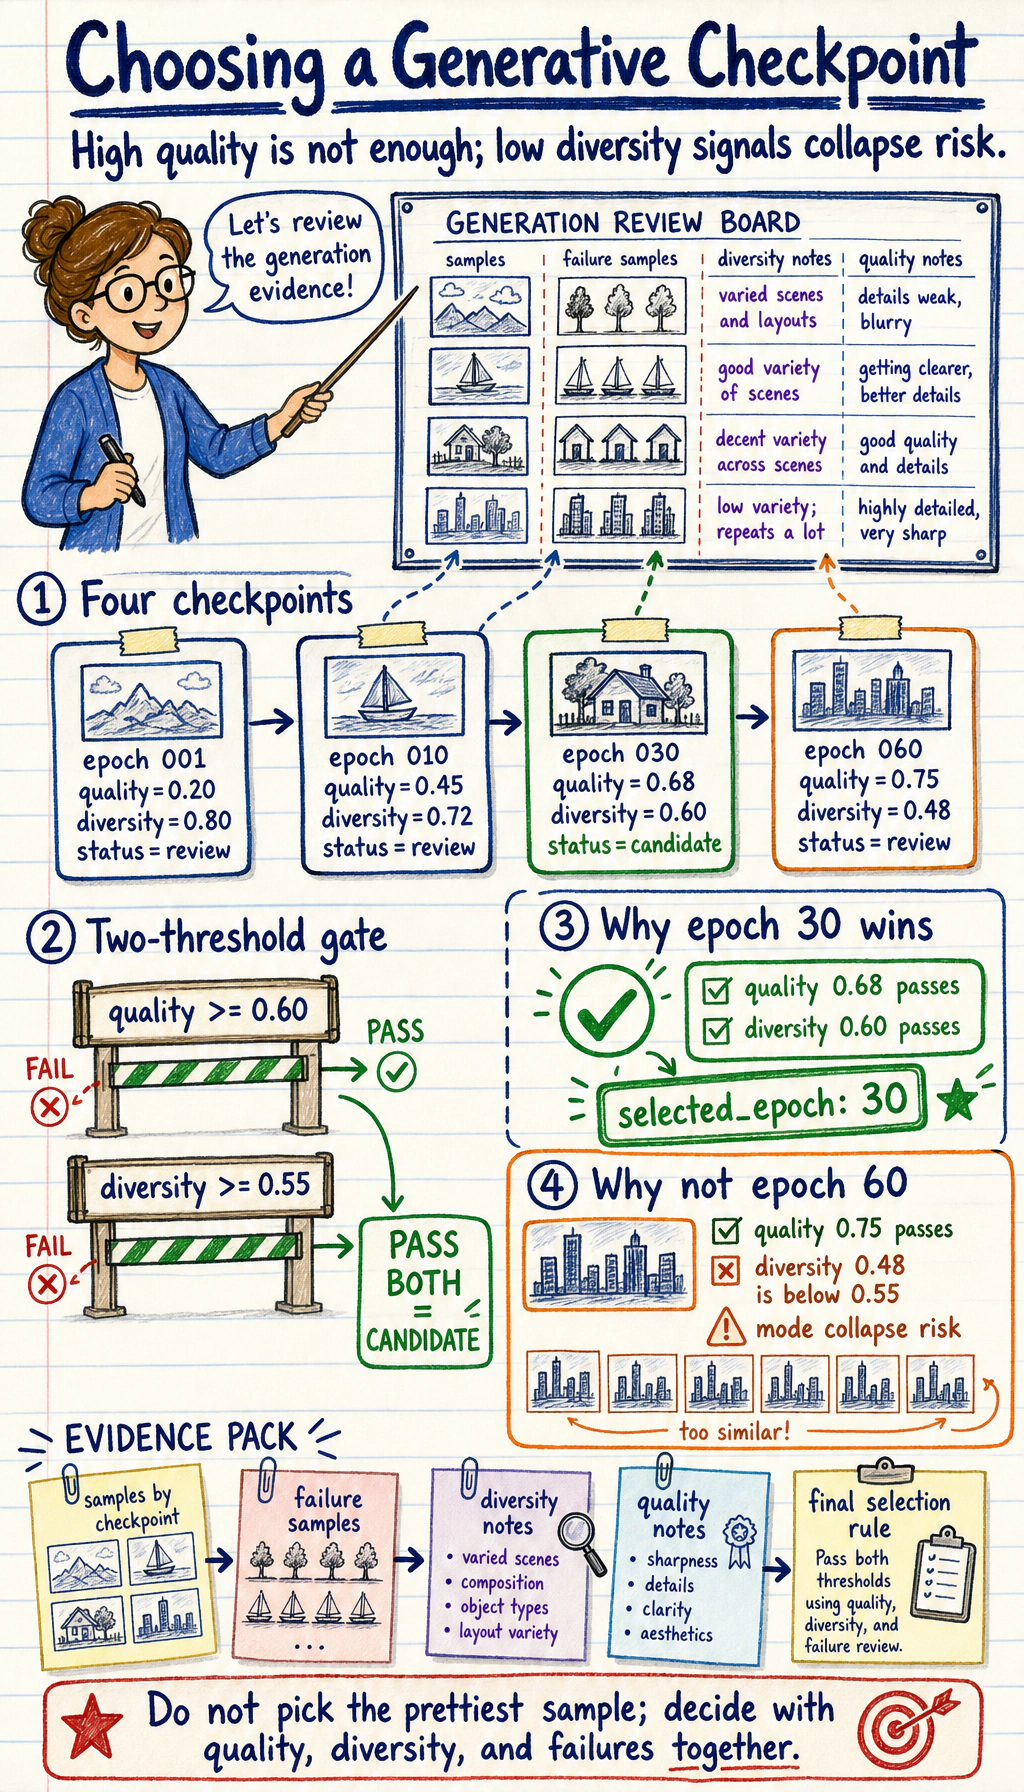 Choosing a Generative Checkpoint
High quality is not enough; low diversity signals collapse risk.
Let's review
the generation
evidence!
GENERATION REVIEW BOARD
samples
failure samples
diversity notes
quality notes
varied scenes
and layouts
details weak,
blurry
good variety
of scenes
getting clearer,
better details
decent variety
across scenes
good quality
and details
low variety;
repeats a lot
highly detailed,
very sharp
1 Four checkpoints
epoch 001
quality = 0.20
diversity = 0.80
status = review
epoch 010
quality = 0.45
diversity = 0.72
status = review
epoch 030
quality = 0.68
diversity = 0.60
status = candidate
epoch 060
quality = 0.75
diversity = 0.48
status = review
2 Two-threshold gate
quality >= 0.60
FAIL
PASS
diversity >= 0.55
FAIL
PASS
BOTH
=
CANDIDATE
3 Why epoch 30 wins
quality 0.68 passes
diversity 0.60 passes
selected_epoch: 30
4 Why not epoch 60
quality 0.75 passes
diversity 0.48
is below 0.55
mode collapse risk
too similar!
EVIDENCE PACK
samples by
checkpoint
failure
samples
...
diversity
notes
• varied scenes
• composition
• object types
• layout variety
quality
notes
• sharpness
• details
• clarity
• aesthetics
final selection
rule
Pass both
thresholds
using quality,
diversity, and
failure review.
Do not pick the prettiest sample; decide with
quality, diversity, and failures together.